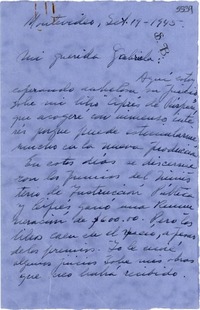 5559
Montevideo, Set. 14-1945.
Mi querida Gabriela:
Aquí estoy
esperando ansiosa su juicio
sobre mi libro Ciprés de Púrpura
que acogeré con inmenso inte-
rés porque puede estimularme
mucho en la nueva producción
En estos días se discernie-
ron los premios del Minis-
terio de Instrucción Pública
y Ciprés ganó una Remune-
ración de $600.00. Pero los
libros caen en el vacío, a pesar
de los premios. Yo le envié
algunos juicios sobre mis obras
que no habrá recibido.